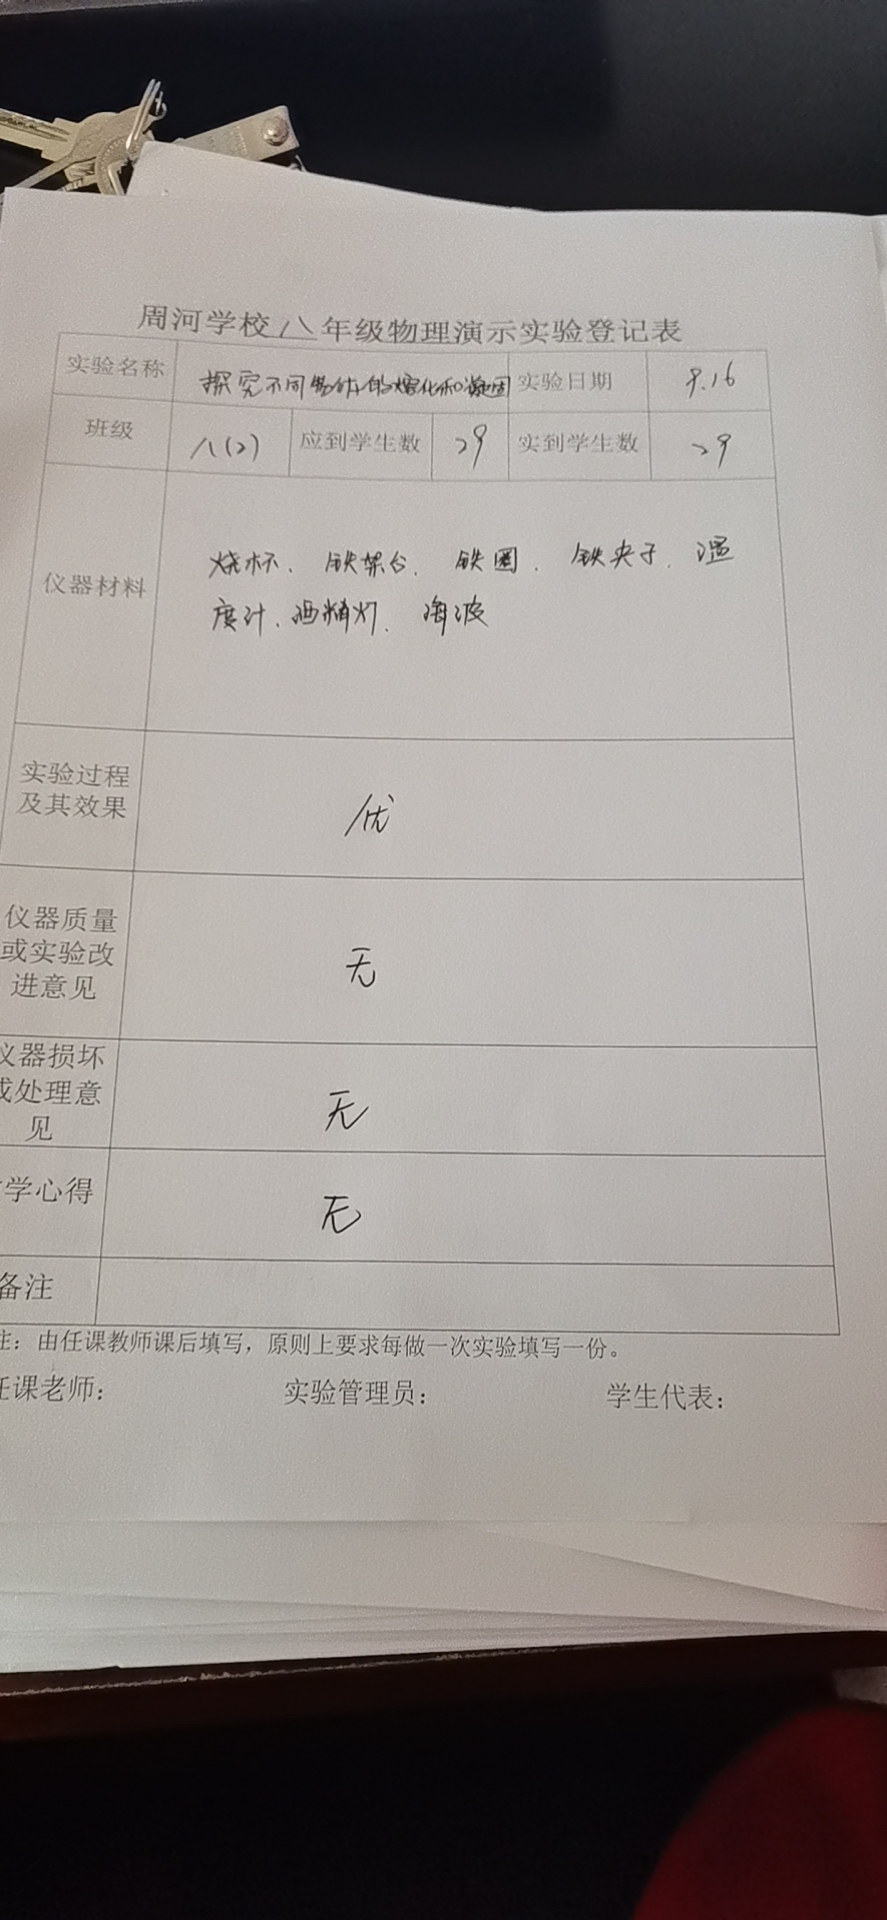 周河学校八年级物理演示实验登记表
实验名称 探究不同物体的熔化和凝固 实验日期 9.16
班级 八(2) 应到学生数 29 实到学生数 29
仪器材料
烧杯、铁架台、铁圈、铁夹子、温
度计、酒精灯、海波
实验过程
及其效果
优
仪器质量
或实验改
进意见
无
仪器损坏
或处理意
见
无
学心得
无
备注
注：由任课教师课后填写，原则上要求每做一次实验填写一份。
任课老师： 实验管理员： 学生代表：